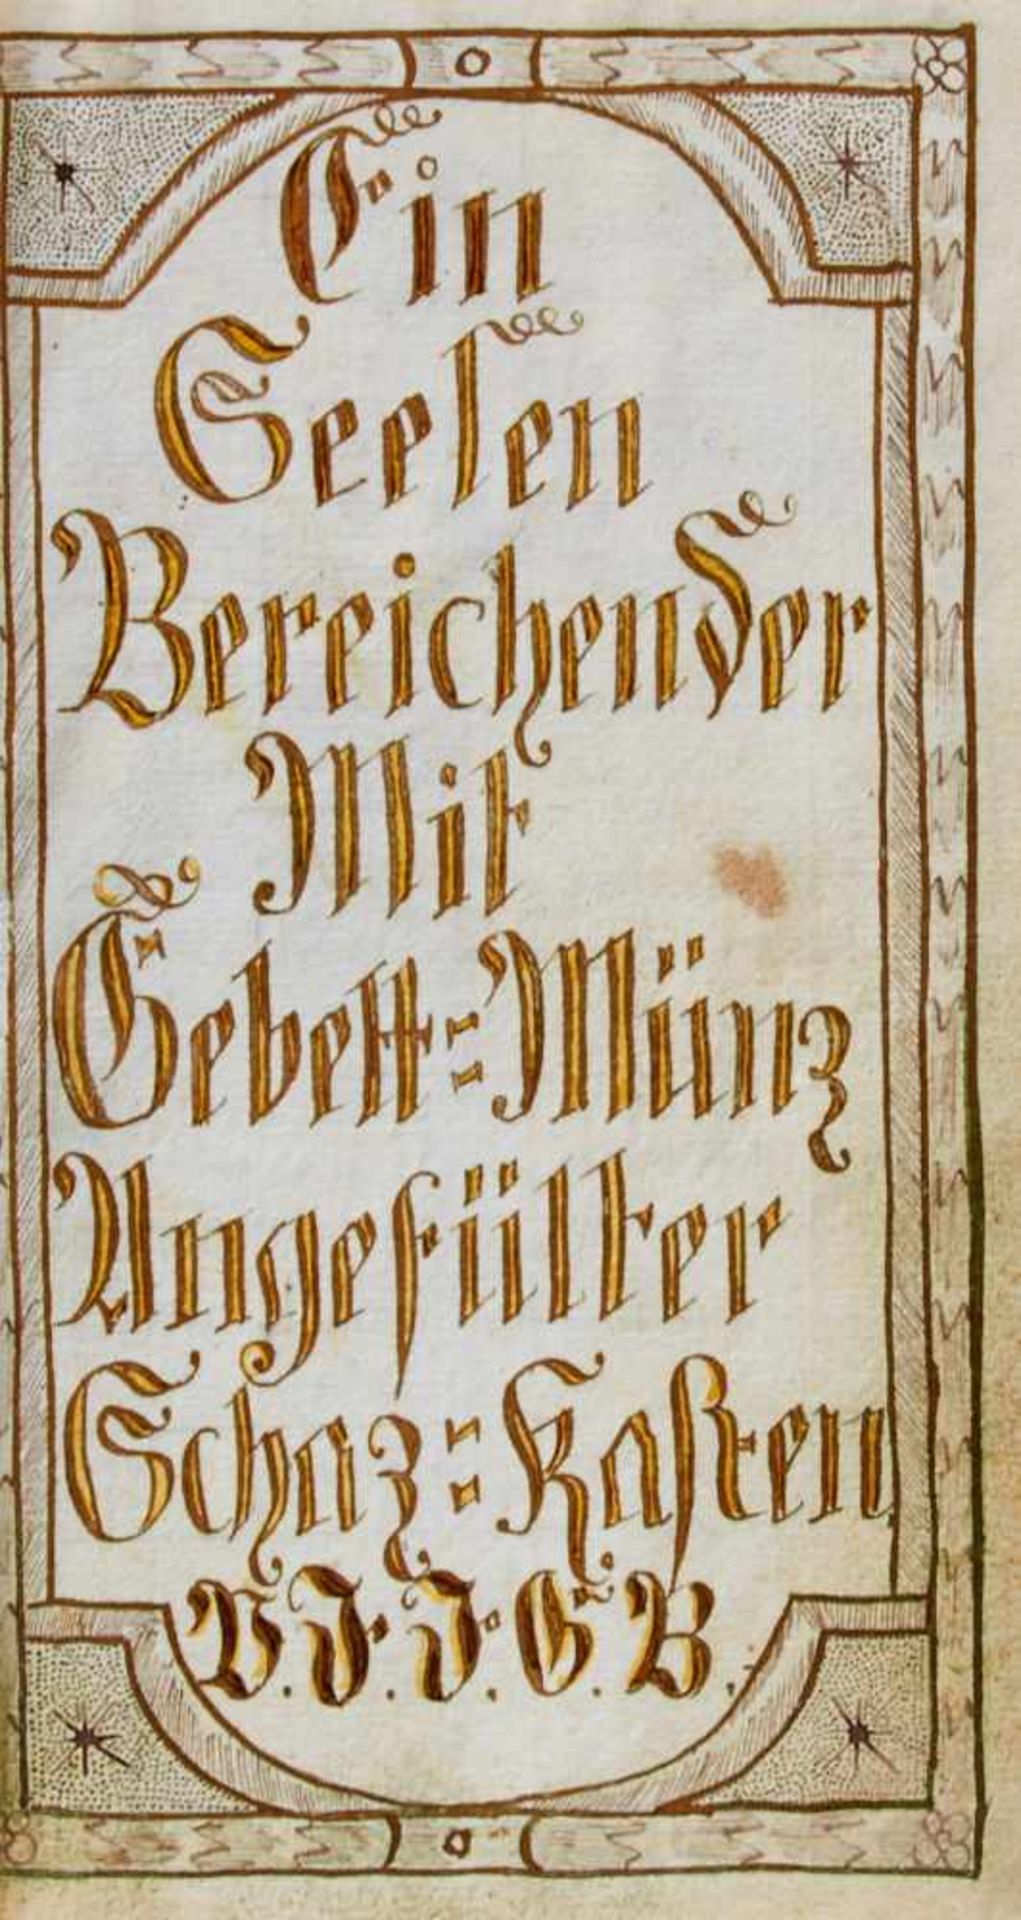 Ein
Seelen
Bereichender
Mit
Gebett=Münz
Angefülter
Schaz=Kasten
V. J. J. G. B.